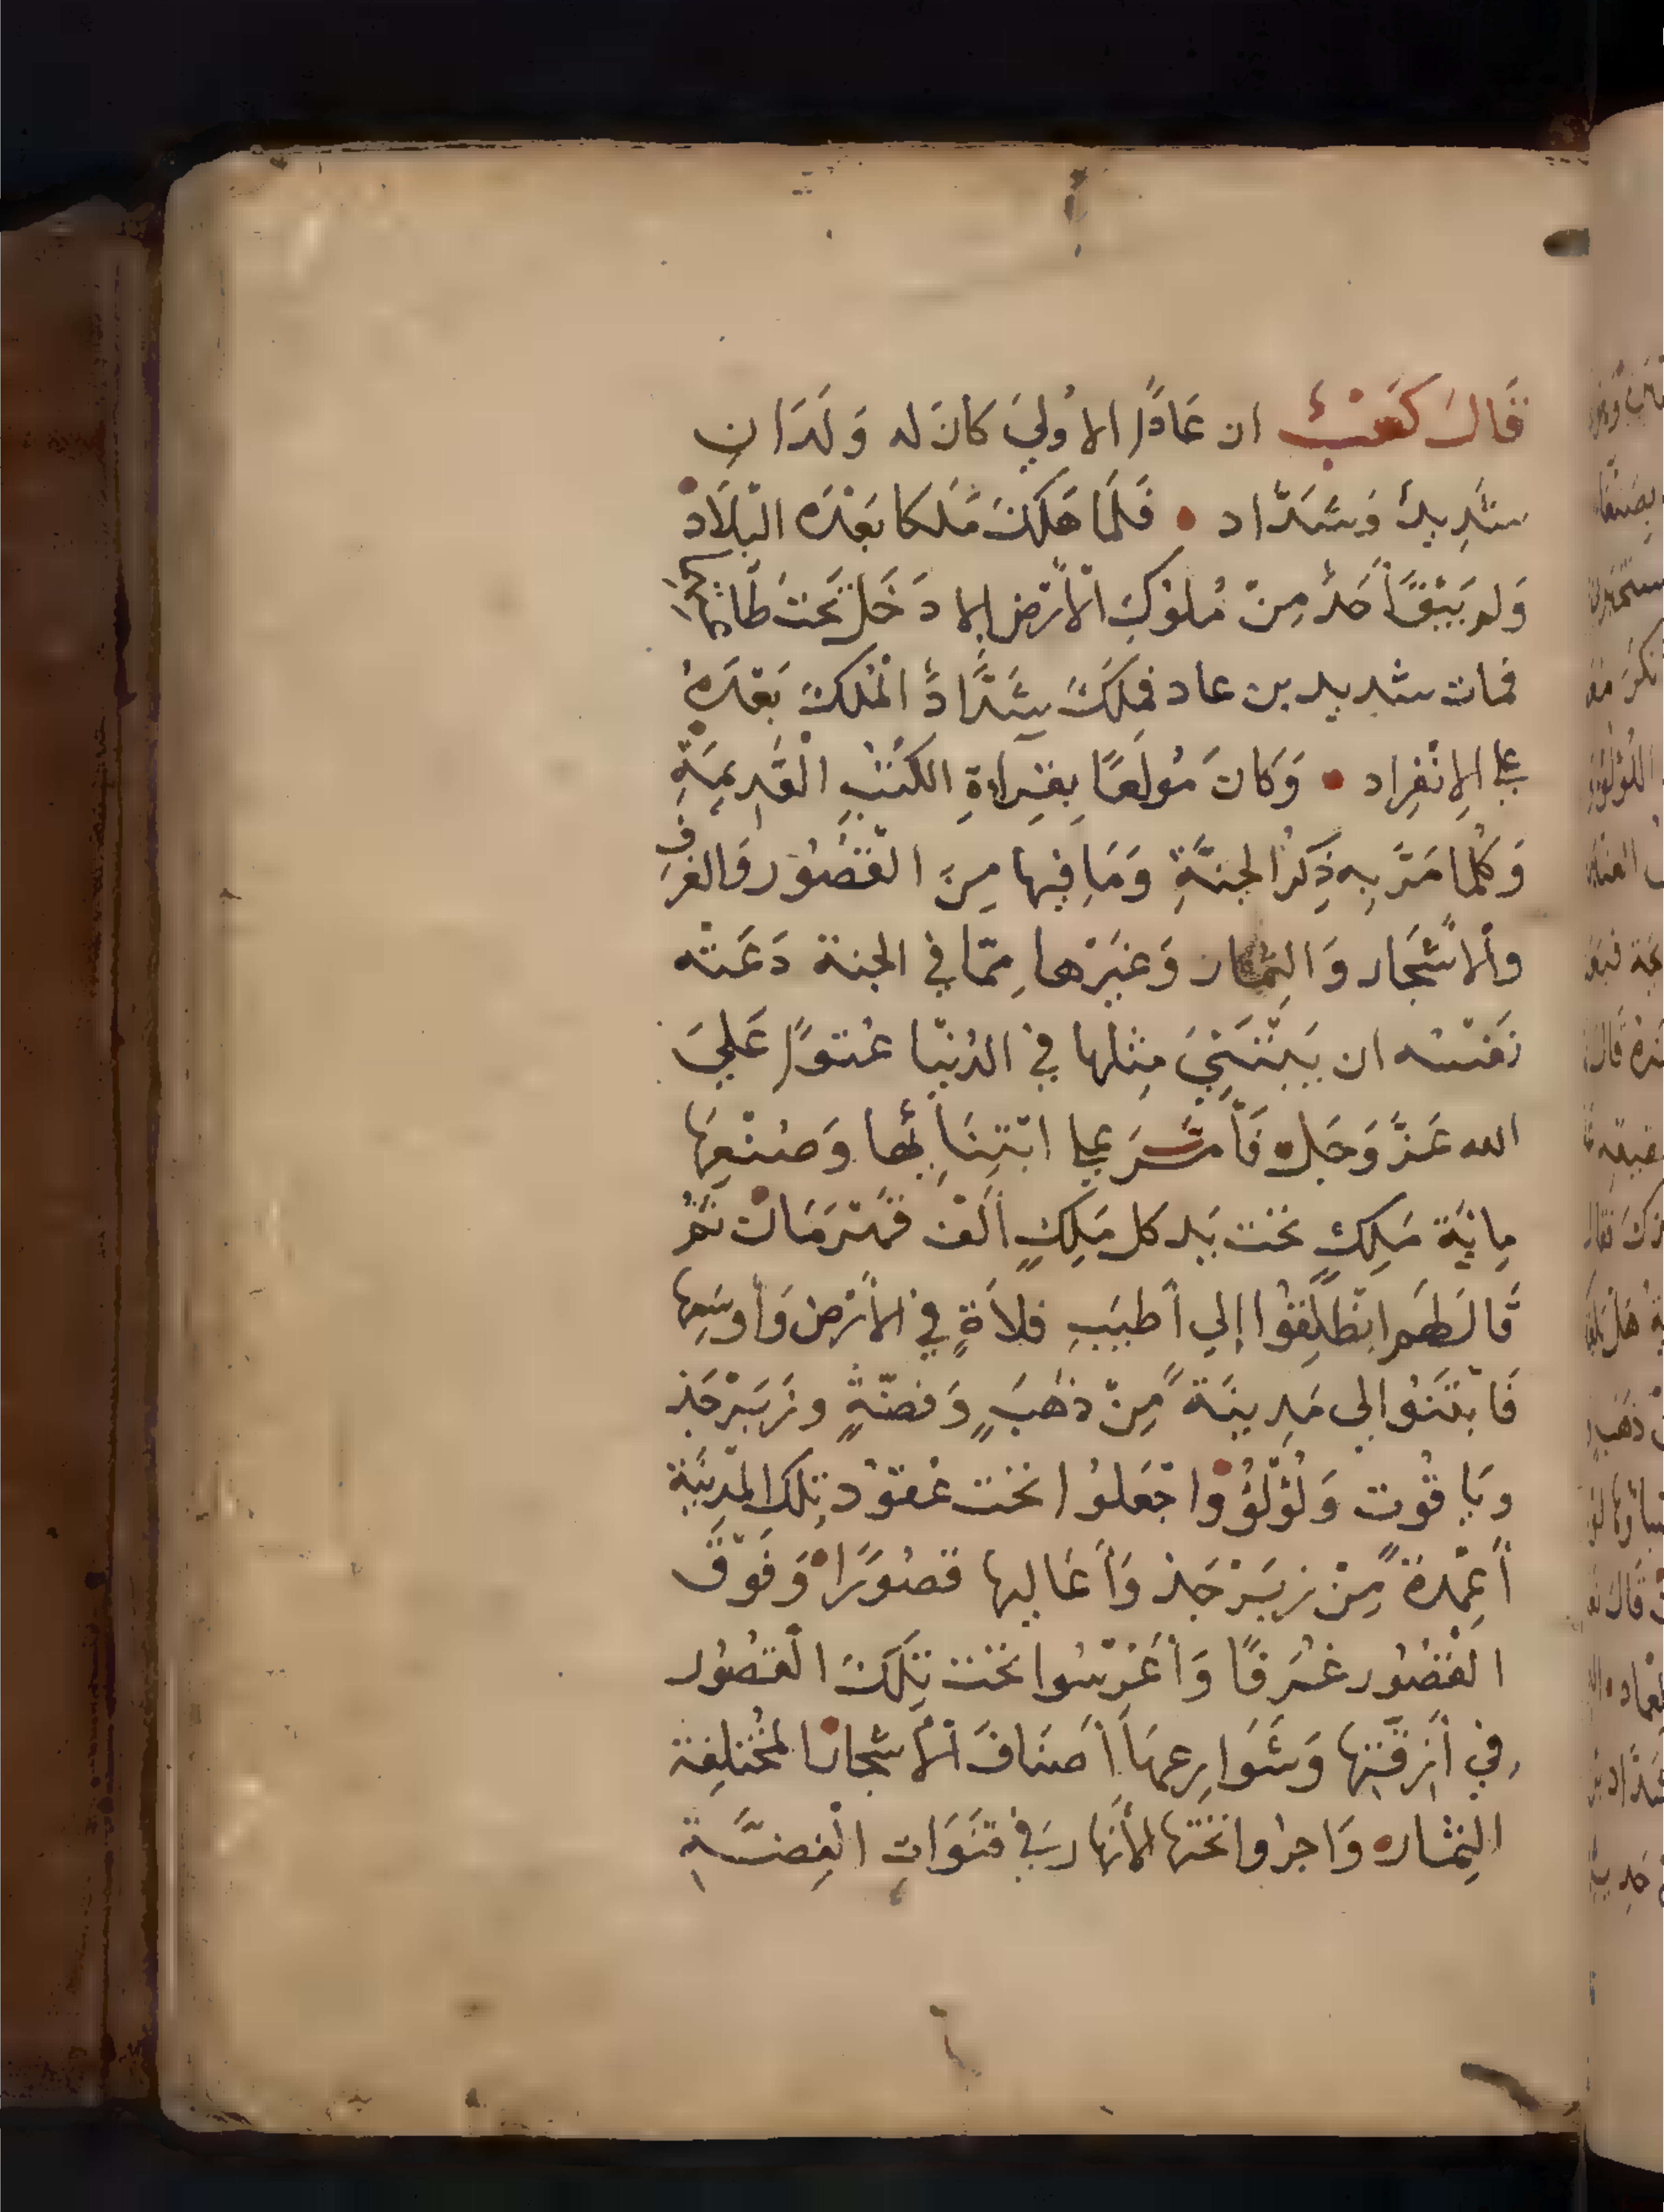 قَالَ كَعْبٌ ان عَادًا الاُولَيَ كَانَ له وَلَدَانِ
شَدِيدٌ وَشَدَّاد • فَلَمَّا هَلَكَ مَلَكَا بَعْدَه البْلَادْ
وَلم يَبْقَ أَحَدٌ مِنْ مُلوُكِ الْأَرْضِ إلا دَخَلَ تَحْتَ طَاعَتِهِمَا
فمات شديد بن عاد فملَكَ شَدَّادٌ الْمُلكَ بَعْدَهُ
علي الِانْفِرِاد • وَكَانَ مُولَعًا بِقِرِاءةِ الكُتُبِ الْقَدِيمَةِ
وَكُلما مَرَّ بِهِ ذِكرُ الجنَّةِ وَمَا فِيها مِنَ الْقُصُور وَالغرَفِ
والْأشْجَار وَالثِمَار وَغَيْرَها مِمّا في الجنة دَعَتْه
نَفسْه ان يَبْتَنِيَ مِثلها في الدُنْيا عُتوًّا عَليَ
الله عَزَّ وَجَل • فَأَمَرَ علي ابْتِنَائِها وَصُنْعِهَا
مِائَة مَلِكٍ تحْت يَد كل مَلِكٍ أَلْف قَهْرَمَان ثُمَّ
قَالَ لَهم انْطَلِقُوا إلي أَطْيَبِ فلاَةٍ في الأَرْض وَأَوسَعِها
فَابْتَنُوا لي مَدِينَةً مِنْ ذهَبٍ وَفضّةٍ وزَبَرْجَد
وَيَاقُوت وَلُؤْلُؤْ وَاجْعَلوُا تحْت عُقوُد تِلك المَدِينَةِ
أَعْمِدةً مِنْ زبَرْجَد وَأَعَاليها قصُورًا • وَفَوْقَ
الْقُصُور غُرَفًا وَأغْرِسُوا تحْت تِلَكَ الْقُصُور
في أَزِقَّتِها وَشَوَارِعِهَا أَصْنَافَ الْأشْجار المُخْتلِفة
الثِمَار • وَاجرُوا تَحْتَها الأَنهارَ في قَنَوَاتِ الْفِضَّةِ